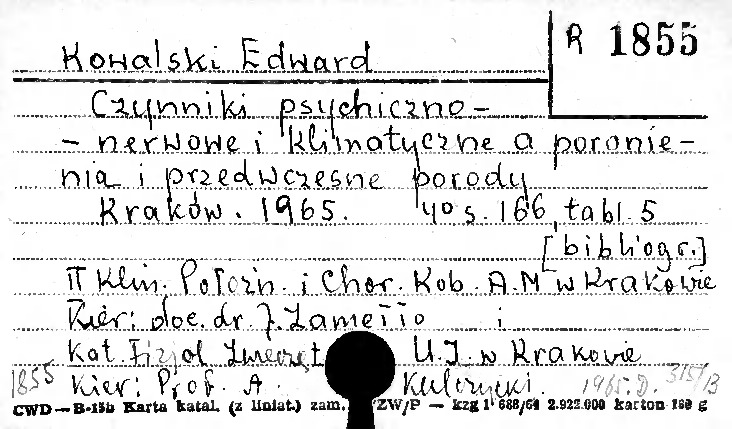 R 1855
Kowalski Edward
Czynniki psychiczno-
- nerwowe i klimatyczne a poronie-
nia i przedwczesne porody
Kraków. 1965. 4o s. 166, tabl. 5
[bibliogr.]
II Klin. Położn. i Chor. Kob. A.M w Krakowie
Kier: doc. dr. J. Zamełło i
Kat. Fizjol Zwierząt U.J. w Krakowie
1855 Kier: Prof. A. Kulczycki. 1965.D. 315/13
CWD—B-15b Karta katal. (z liniat.) zam. ZW/P — kzg 1 688/64 2.922.000 karton 160 g